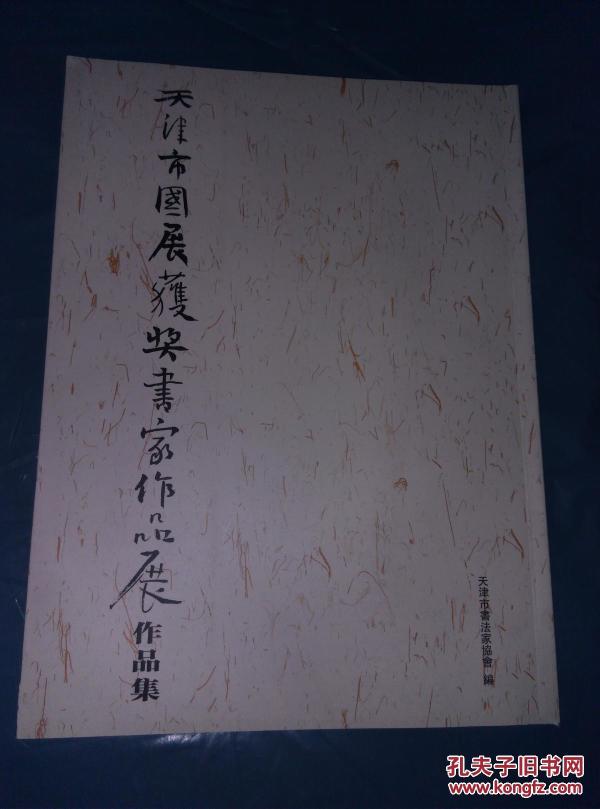 天津市國展獲奬書家作品展
作品集
天津市書法家協會 編
孔夫子旧书网
www.kongfz.com